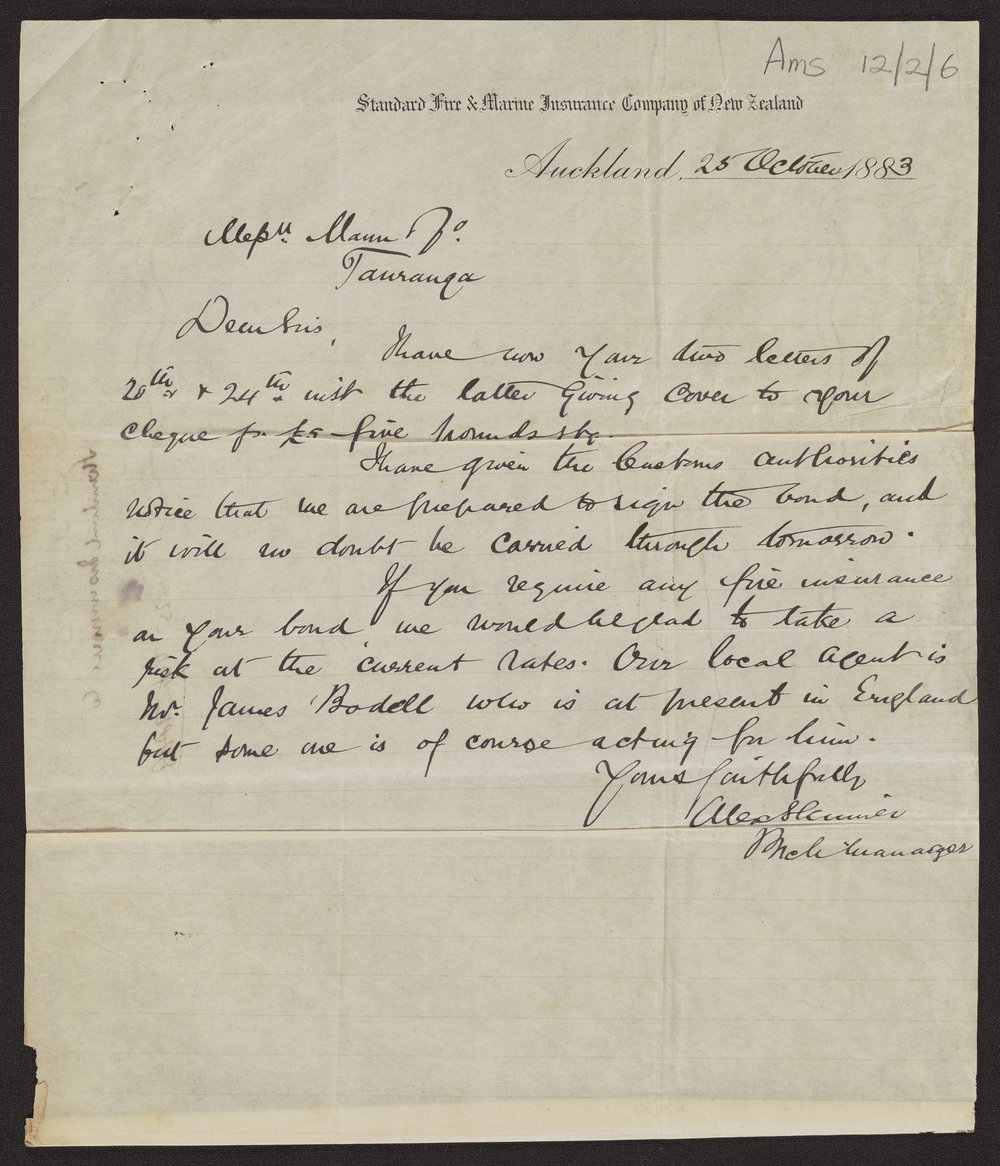 Ams 12/2/6
Standard Fire & Marine Insurance Company of New Zealand
Auckland, 25 October 1883
Messrs Mann & Co.
Tauranga
Dear Sirs,
I have now your two letters of
20th & 24th inst the latter giving cover to your
cheque for £5 five pounds stg.
I have given the Customs authorities
notice that we are prepared to sign the bond, and
it will no doubt be carried through tomorrow.
If you require any fire insurance
on your bond we would be glad to take a
risk at the current rates. Our local agent is
Mr. James Bodell who is at present in England
but some one is of course acting for him.
Yours faithfully
Alex
Manager